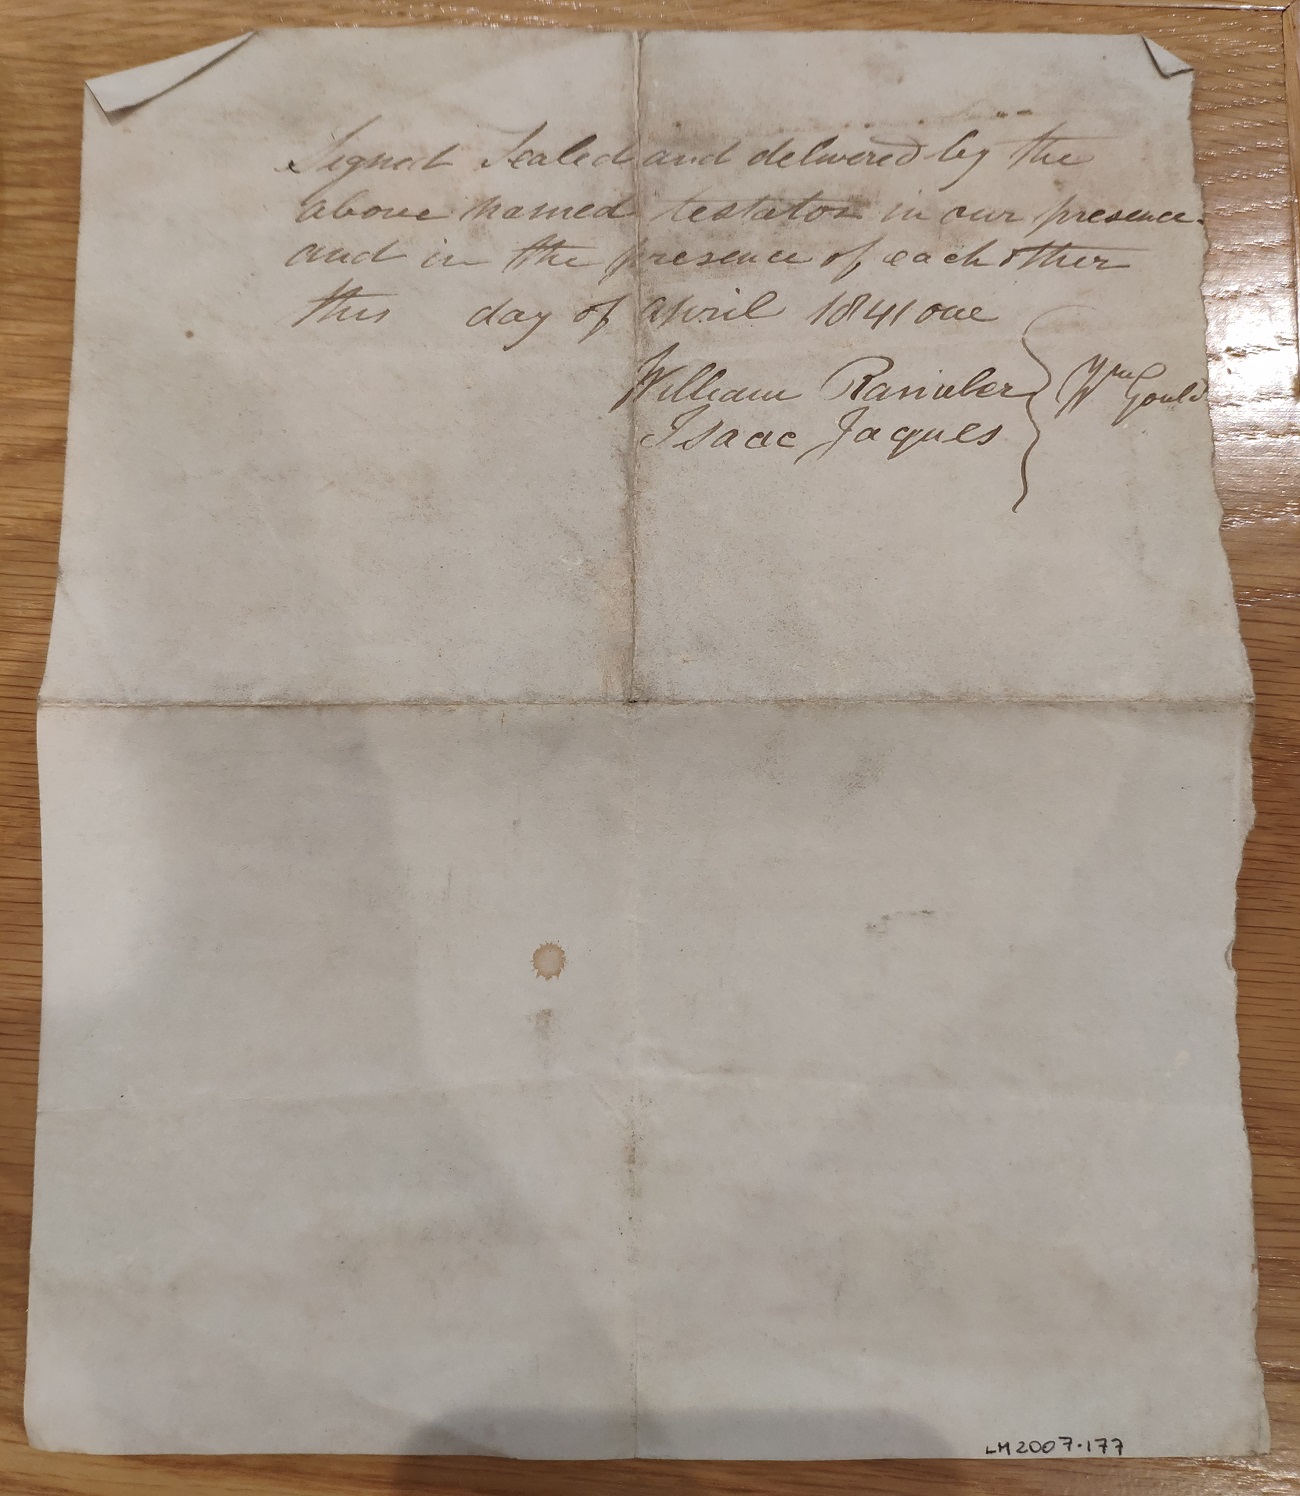 Signed Sealed and delivered by the
above named testator in our presence
and in the presence of each other
this day of april 1841 one
William
Isaac Jaques
Wm Gould
LH2007.177